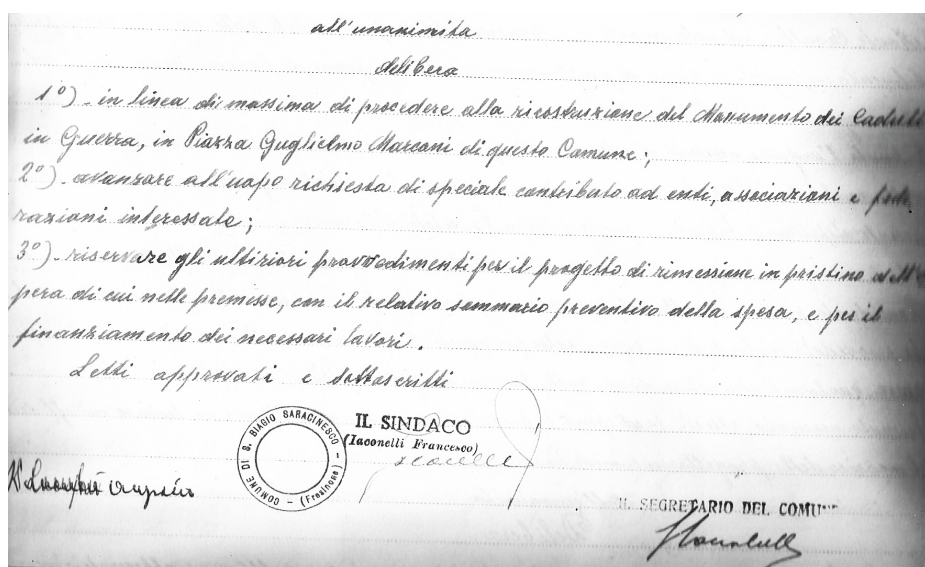 all'unanimita
delibera
1°) - in linea di massima di procedere alla ricostruzione del Monumento dei Caduti
in Guerra, in Piazza Guglielmo Marconi di questo Comune;
2°) - avanzare all'uopo richiesta di speciale contributo ad enti, associazioni e fede
razioni interessate;
3°) - riservare gli ultiriori provvedimenti per il progetto di rimessione in pristino dell'o
pera di cui nelle premesse, con il relativo sommario preventivo della spesa, e per il
finanziamento dei necessari lavori.
Letti approvati e sottoscritti
COMUNE DI S. BIAGIO SARACINESCO - (Frosinone) -
IL SINDACO
(Iaconelli Francesco)
IL SEGRETARIO DEL COMUNE